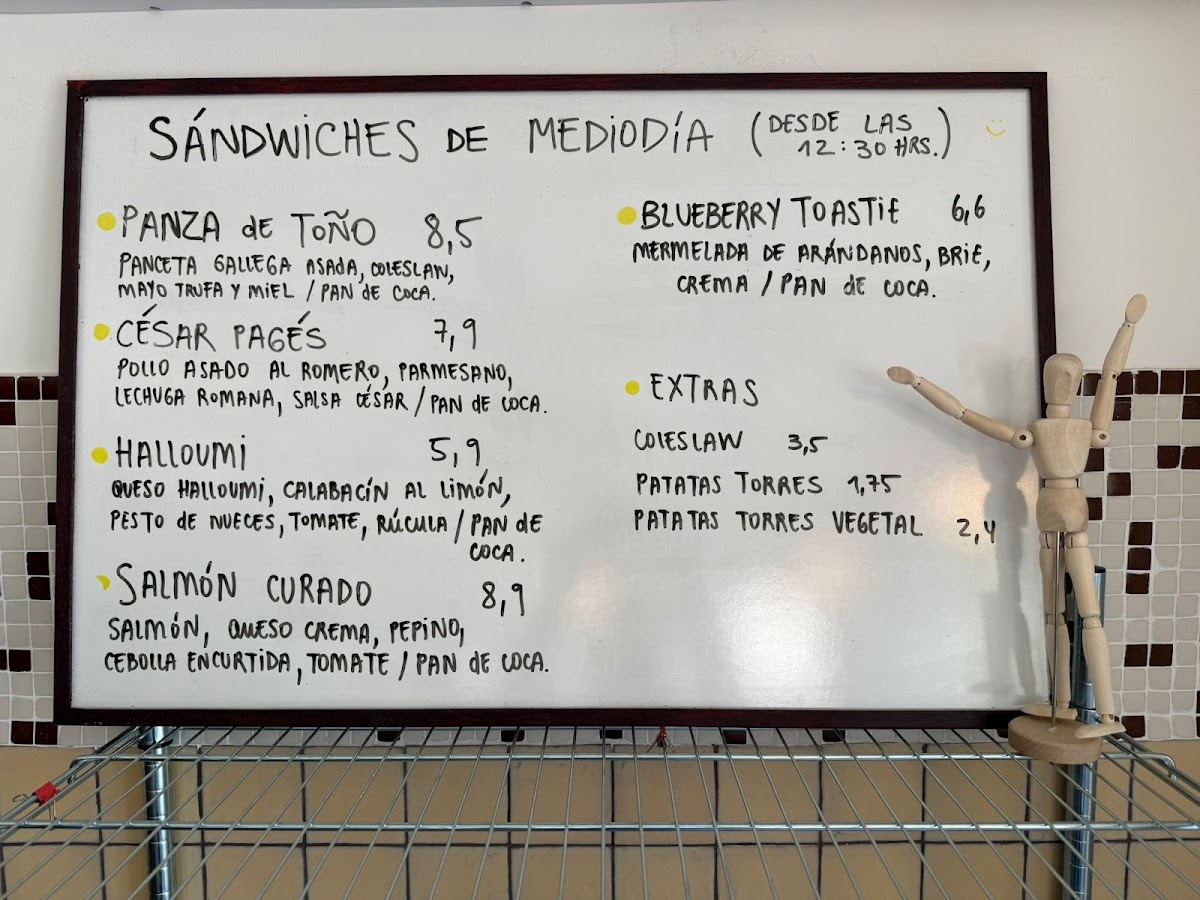 SÁNDWICHES DE MEDIODÍA (DESDE LAS
12:30 HRS.)
PANZA de TOÑO 8,5
PANCETA GALLEGA ASADA, COLESLAN,
MAYO TRUFA Y MIEL / PAN de COCA.
CÉSAR PAGÉS 7,9
POLLO ASADO AL ROMERO, PARMESANO,
LECHUGA ROMANA, SALSA CÉSAR / PAN de COCA.
HALLOUMI 5,9
QUESO HALLOUMI, CALABACÍN AL LIMÓN,
PESTO DE NUECES, TOMATE, RÚCULA / PAN de
COCA.
SALMÓN CURADO 8,9
SALMÓN, QUESO CREMA, PEPINO,
CEBOLLA ENCURTIDA, TOMATE / PAN de COCA.
BLUEBERRY TOASTIE 6,6
MERMELADA DE ARÁNDANOS, BRIE,
CREMA / PAN de COCA.
EXTRAS
COLESLAW 3,5
PATATAS TORRES 1,75
PATATAS TORRES VEGETAL 2,4